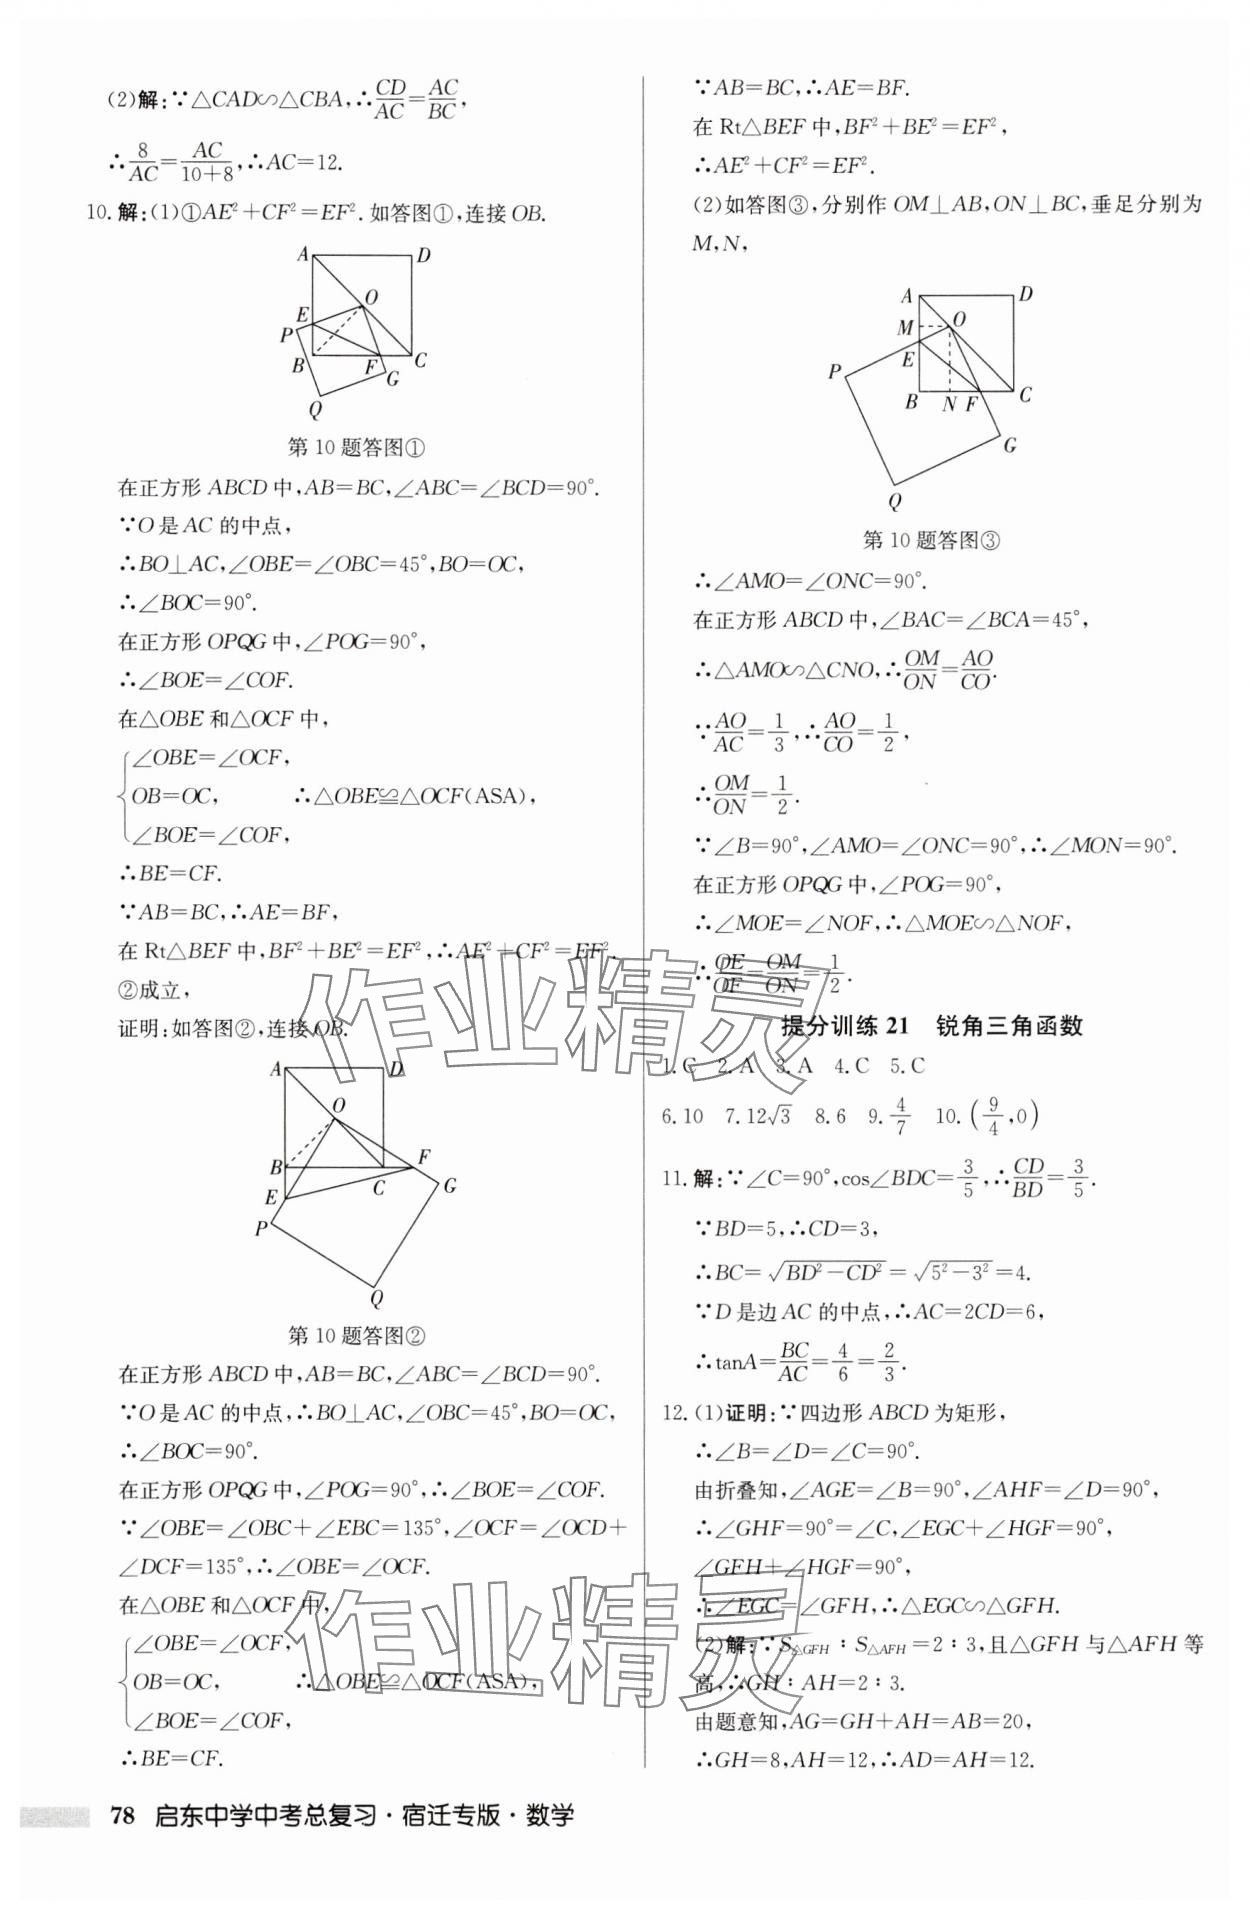 (2)解:∵△CAD∽△CBA,∴CD/AC=AC/BC,
∴8/AC=AC/(10+8),∴AC=12.
10.解:(1)①AE²+CF²=EF².如答图①,连接OB.
A D
O
E
P
B F C
G
Q
第10题答图①
在正方形ABCD中,AB=BC,∠ABC=∠BCD=90°.
∵O是AC的中点,
∴BO⊥AC,∠OBE=∠OBC=45°,BO=OC,
∴∠BOC=90°.
在正方形OPQG中,∠POG=90°,
∴∠BOE=∠COF.
在△OBE和△OCF中,
∠OBE=∠OCF,
OB=OC, ∴△OBE≌△OCF(ASA),
∠BOE=∠COF,
∴BE=CF.
∵AB=BC,∴AE=BF,
在Rt△BEF中,BF²+BE²=EF²,∴AE²+CF²=EF².
②成立,
证明:如答图②,连接OB.
A D
O
B F
C G
E
P
Q
第10题答图②
在正方形ABCD中,AB=BC,∠ABC=∠BCD=90°.
∵O是AC的中点,∴BO⊥AC,∠OBC=45°,BO=OC,
∴∠BOC=90°.
在正方形OPQG中,∠POG=90°,∴∠BOE=∠COF.
∵∠OBE=∠OBC+∠EBC=135°,∠OCF=∠OCD+
∠DCF=135°,∴∠OBE=∠OCF.
在△OBE和△OCF中,
∠OBE=∠OCF,
OB=OC, ∴△OBE≌△OCF(ASA),
∠BOE=∠COF,
∴BE=CF.
∵AB=BC,∴AE=BF.
在Rt△BEF中,BF²+BE²=EF²,
∴AE²+CF²=EF².
(2)如答图③,分别作OM⊥AB,ON⊥BC,垂足分别为
M,N,
A D
M O
E
P
B N F C
G
Q
第10题答图③
∴∠AMO=∠ONC=90°.
在正方形ABCD中,∠BAC=∠BCA=45°,
∴△AMO∽△CNO,∴OM/ON=AO/CO.
∵AO/AC=1/3,∴AO/CO=1/2,
∴OM/ON=1/2.
∵∠B=90°,∠AMO=∠ONC=90°,∴∠MON=90°.
在正方形OPQG中,∠POG=90°,
∴∠MOE=∠NOF,∴△MOE∽△NOF,
∴OE/OF=OM/ON=1/2.
提分训练21 锐角三角函数
1.C 2.A 3.A 4.C 5.C
6.10 7.12√3 8.6 9.4/7 10.(9/4,0)
11.解:∵∠C=90°,cos∠BDC=3/5,∴CD/BD=3/5.
∵BD=5,∴CD=3,
∴BC=√(BD²-CD²)=√(5²-3²)=4.
∵D是边AC的中点,∴AC=2CD=6,
∴tanA=BC/AC=4/6=2/3.
12.(1)证明:∵四边形ABCD为矩形,
∴∠B=∠D=∠C=90°.
由折叠知,∠AGE=∠B=90°,∠AHF=∠D=90°,
∴∠GHF=90°=∠C,∠EGC+∠HGF=90°,
∠GFH+∠HGF=90°,
∴∠EGC=∠GFH,∴△EGC∽△GFH.
(2)解:∵S△GFH∶S△AFH=2∶3,且△GFH与△AFH等
高,∴GH∶AH=2∶3.
由题意知,AG=GH+AH=AB=20,
∴GH=8,AH=12,∴AD=AH=12.
作业精灵
作业精灵
78 启东中学中考总复习·宿迁专版·数学